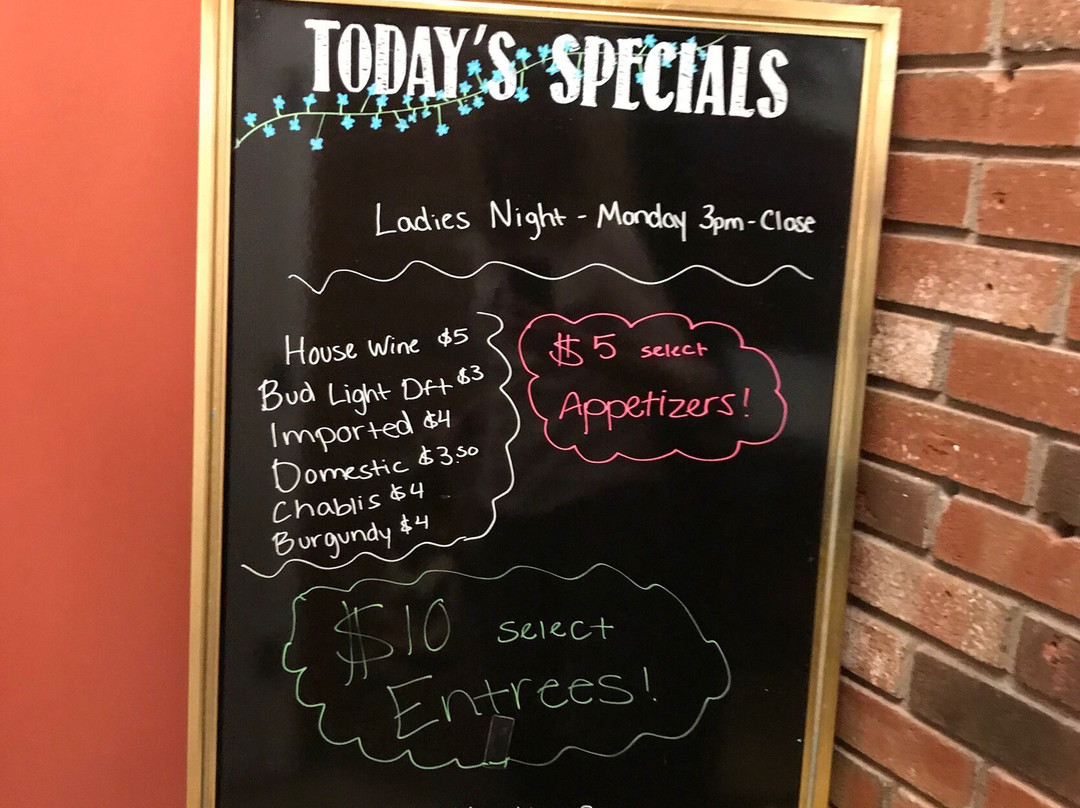 TODAY'S SPECIALS
Ladies Night - Monday 3pm - Close
House Wine $5
Bud Light Dft $3
Imported $4
Domestic $3.50
Chablis $4
Burgundy $4
$5 select
Appetizers!
$10 select
Entrees!